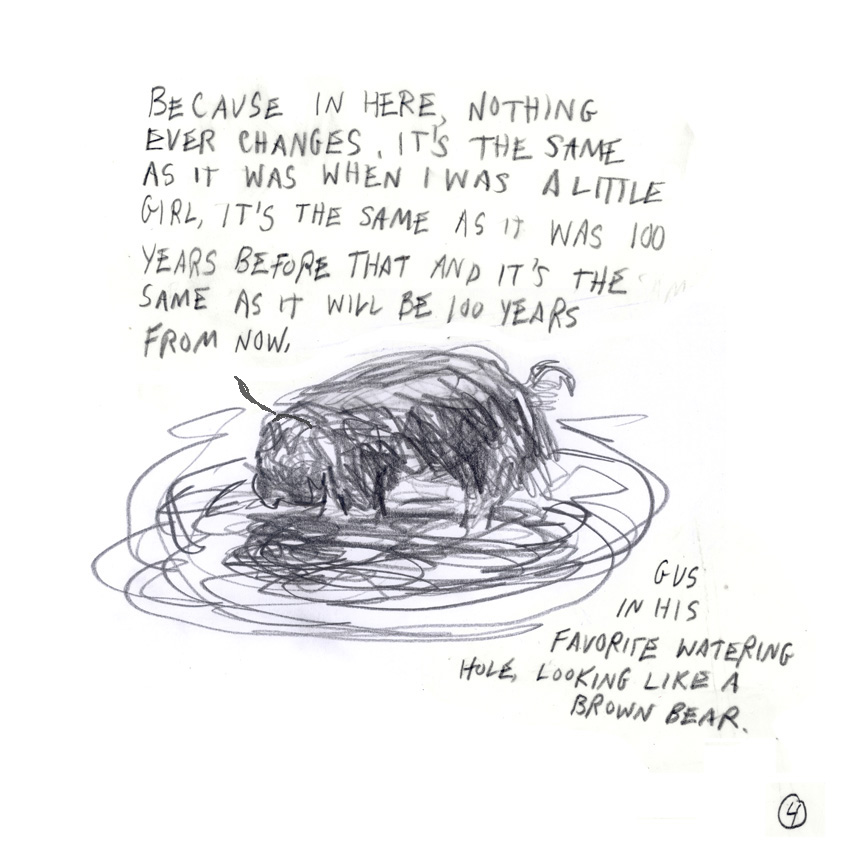 BECAUSE IN HERE, NOTHING
EVER CHANGES. IT'S THE SAME
AS IT WAS WHEN I WAS A LITTLE
GIRL, IT'S THE SAME AS IT WAS 100
YEARS BEFORE THAT AND IT'S THE SAM
SAME AS IT WILL BE 100 YEARS
FROM NOW.
GUS
IN HIS
FAVORITE WATERING
HOLE, LOOKING LIKE A
BROWN BEAR.
4